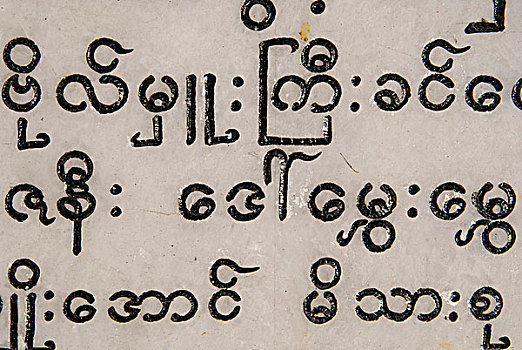 ဗိုလ်မှူးကြီးခင်
ဇနီး ဒေါ်မွှေးမွှေး
အောင် မိသားစု